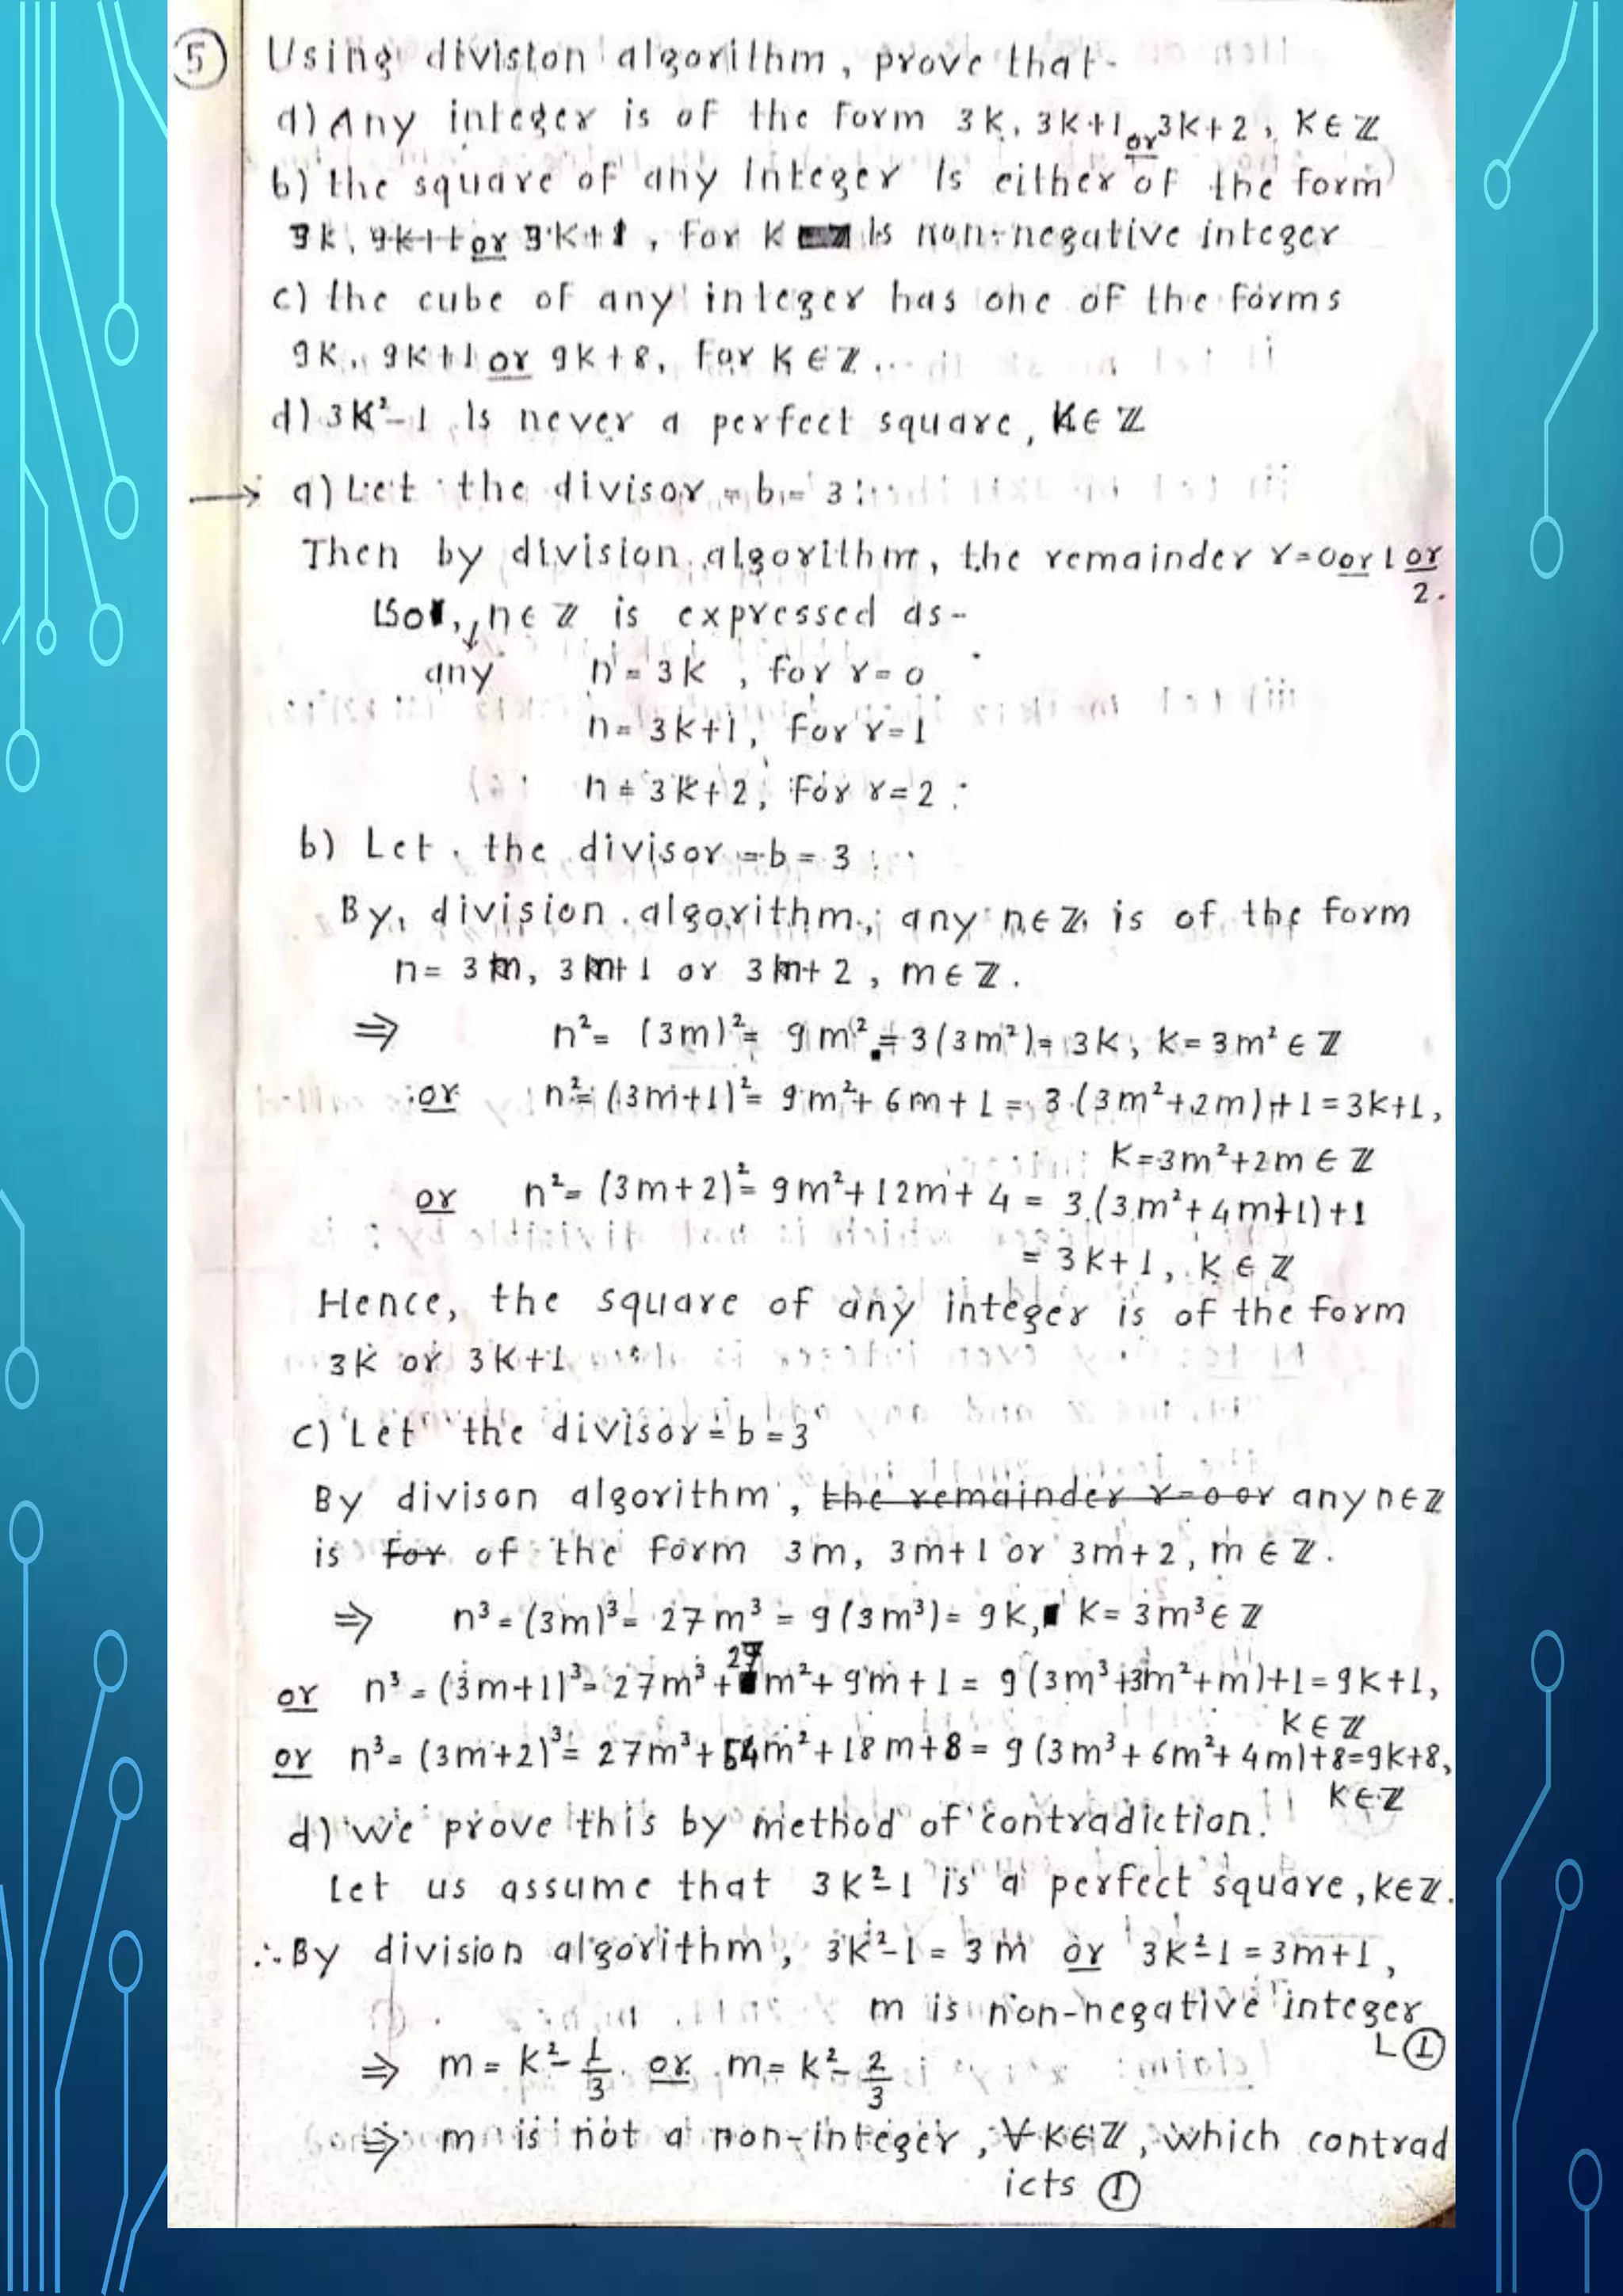 5 Using division algorithm, prove that-
a) Any integer is of the form 3k, 3k+1 or 3k+2, k∈ℤ
b) the square of any integer is either of the form
3k, 9k+1 or 3k+1, for k is non-negative integer
c) the cube of any integer has one of the forms
9k, 9k+1 or 9k+8, for k∈ℤ.
d) 3k²-1 is never a perfect square, k∈ℤ
→ a) Let the divisor = b = 3
Then by division algorithm, the remainder r=0 or 1 or 2.
n∈ℤ is expressed as-
any n = 3k, for r=0
n = 3k+1, for r=1
n = 3k+2, for r=2
b) Let the divisor = b = 3
By division algorithm, any n∈ℤ is of the form
n = 3m, 3m+1 or 3m+2, m∈ℤ.
⇒ n² = (3m)² = 9m² = 3(3m²) = 3k, k = 3m² ∈ ℤ
or n² = (3m+1)² = 9m²+6m+1 = 3(3m²+2m)+1 = 3k+1,
k = 3m²+2m ∈ ℤ
or n² = (3m+2)² = 9m²+12m+4 = 3(3m²+4m+1)+1
= 3k+1, k∈ℤ
Hence, the square of any integer is of the form
3k or 3k+1
c) Let the divisor = b = 3
By divison algorithm, the remainder r=0 or any n∈ℤ
is for of the form 3m, 3m+1 or 3m+2, m∈ℤ.
⇒ n³ = (3m)³ = 27m³ = 9(3m³) = 9k, k = 3m³∈ℤ
or n³ = (3m+1)³ = 27m³+27m²+9m+1 = 9(3m³+3m²+m)+1 = 9k+1,
k∈ℤ
or n³ = (3m+2)³ = 27m³+54m²+18m+8 = 9(3m³+6m²+4m)+8=9k+8,
k∈ℤ
d) We prove this by method of contradiction.
Let us assume that 3k²-1 is a perfect square, k∈ℤ.
∴ By division algorithm, 3k²-1 = 3m or 3k²-1 = 3m+1,
m is non-negative integer
L①
⇒ m = k² - 1/3 or m = k² - 2/3
⇒ m is not a non-integer, ∀ k∈ℤ, which contrad
icts ①